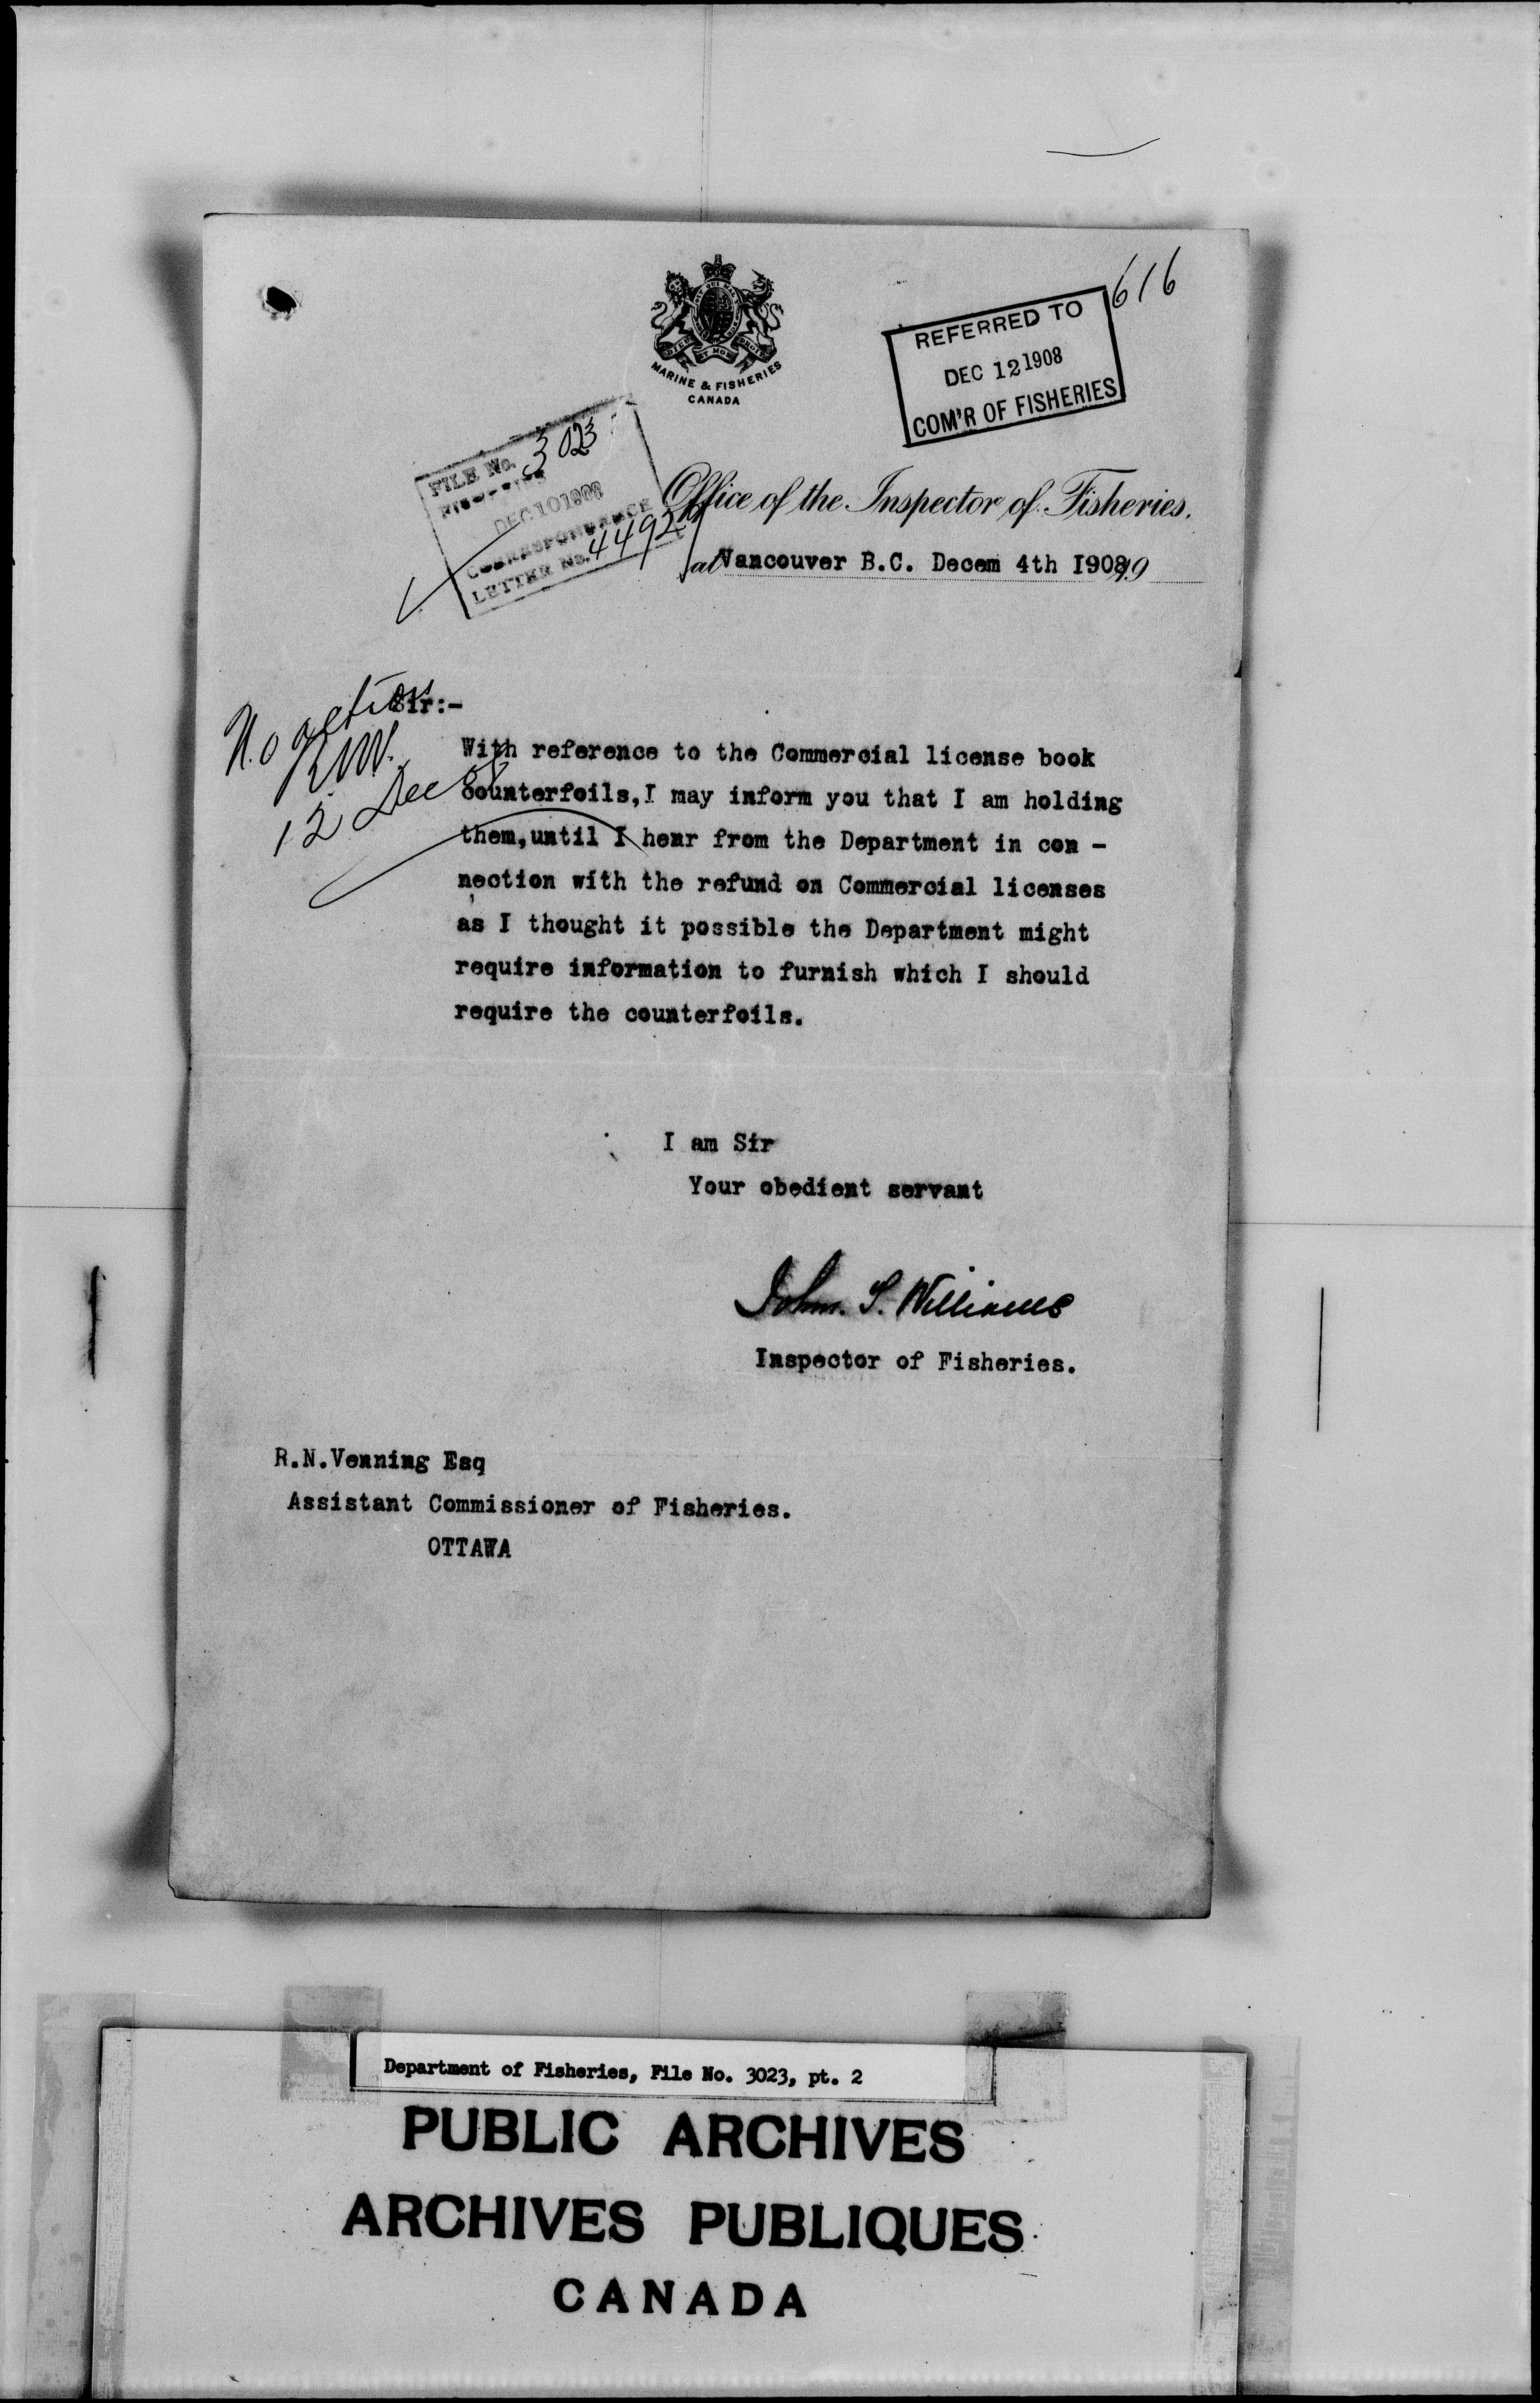 616
MARINE & FISHERIES
CANADA
REFERRED TO
DEC 12 1908
COM'R OF FISHERIES
FILE No. 3023
FISHERIES
DEC 10 1908
CORRESPONDANCE
LETTER No. 4492
Office of the Inspector of Fisheries.
at Vancouver B.C. Decem 4th I908 19
No action
RNV.
12 Dec 08
Sir:-
With reference to the Commercial license book
counterfoils,I may inform you that I am holding
them,until I hear from the Department in con -
nection with the refund on Commercial licenses
as I thought it possible the Department might
require information to furnish which I should
require the counterfoils.
I am Sir
Your obedient servant
John. S. Williams
Inspector of Fisheries.
R.N.Venning Esq
Assistant Commissioner of Fisheries.
OTTAWA
Department of Fisheries, File No. 3023, pt. 2
PUBLIC ARCHIVES
ARCHIVES PUBLIQUES
CANADA